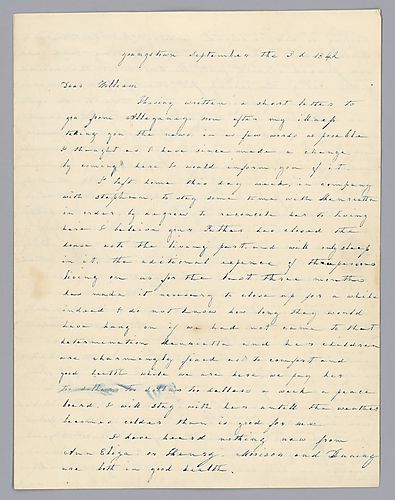 youngstown September the 3d 1842
Dear William
Having written a short letter to
you from Alleganay soon after my illness
taking you the news in as few words as possible
I thought as I have since made a change
by coming here I would inform you of it.
I left home this day week, in company
with stephenson, to stay some time with Henrietta
in order by degrees to reconcile her to living
here I beleive your Father has closed the
house with the living part and will only sleep
in it. the aditional expence of three persons
living on us for the last three months
has made it necessary to close up for a while
indeed I do not know how long they would
have hung on if we had not came to that
determination Henrietta and her children
are charmingly fixed as to comfort and
good health while we are here we pay her
two dollars a week a peace
board. I will stay with her untill the weather
becomes colder than is good for me
I have heard nothing new from
Ann Eliza or Henry. Morison and
are both in good health.